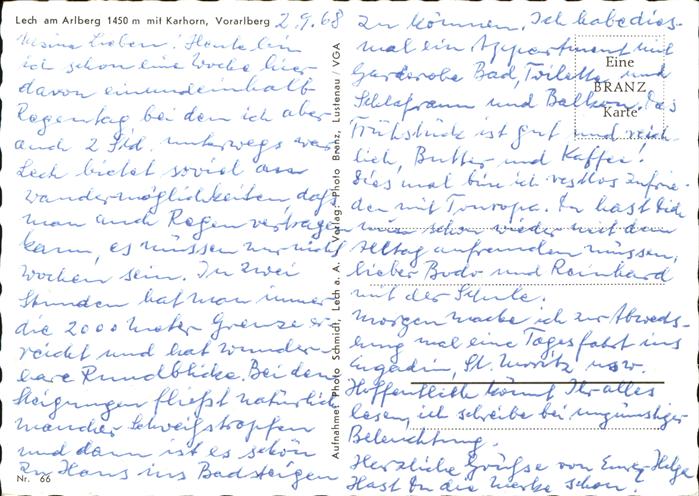 Lech am Arlberg 1450 m mit Karhorn, Vorarlberg
2.9.68
Meine Lieben! Heute bin
ich schon eine Woche hier
davon einundeinhalb
Regentag bei den ich aber
auch 2 Std. unterwegs war
Lech bietet soviel an
Wandermöglichkeiten, daß
man auch Regen vertragen
kann, es müssen nur nicht
Wochen sein. In zwei
Stunden hat man immer
die 2000 Meter Grenze er-
reicht und hat wunder-
bare Rundblicke. Bei den
Steigungen fließt natürlich
mancher Schweißtropfen
und dann ist es schön
zu Haus ins Bad steigen
Nr. 66
Aufnahme: Photo Schmidt, Lech a. A. Verlag: Photo Branz, Lustenau / VGA
zu können. Ich habe dies-
mal ein Appartement mit
Garderobe Bad, Toilette und
Schlafraum und Balkon. Das
Frühstück ist gut und reich-
lich, Butter und Kaffee!
Dies mal bin ich restlos zufrie-
den mit Touropa. Du hast Dich
nun schon wieder mit dem
Alltag anfreunden müssen,
lieber Bodo und Reinhard
mit der Schule.
Morgen mache ich zur Abwechs-
lung mal eine Tagesfahrt ins
Engadin, St. Moritz usw.
Hoffentlich könnt Ihr alles
lesen, ich schreibe bei ungünstiger
Beleuchtung.
Herzliche Grüße von Eurer Helga
Hast Du die Werke schon!
Eine
BRANZ
Karte